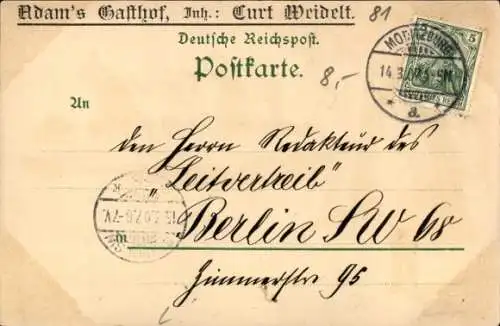 Adam's Gasthof, Inh.: Curt Weidelt.
81
Deutsche Reichspost.
Postkarte.
8,-
5
MORITZBURG
14.3.07. 5-6N.
a.
An
den Herrn Redakteur des
"Zeitvertreib"
Berlin SW 68
Zimmerstr 95